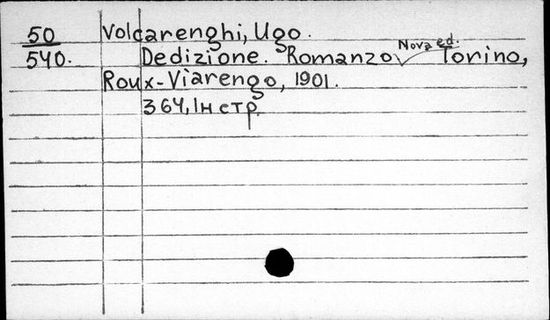 50 Volcarenghi, Ugo.
540. Dedizione. Romanzo Nova ed. Torino,
Roux-Viarengo, 1901.
364, 1н стр.